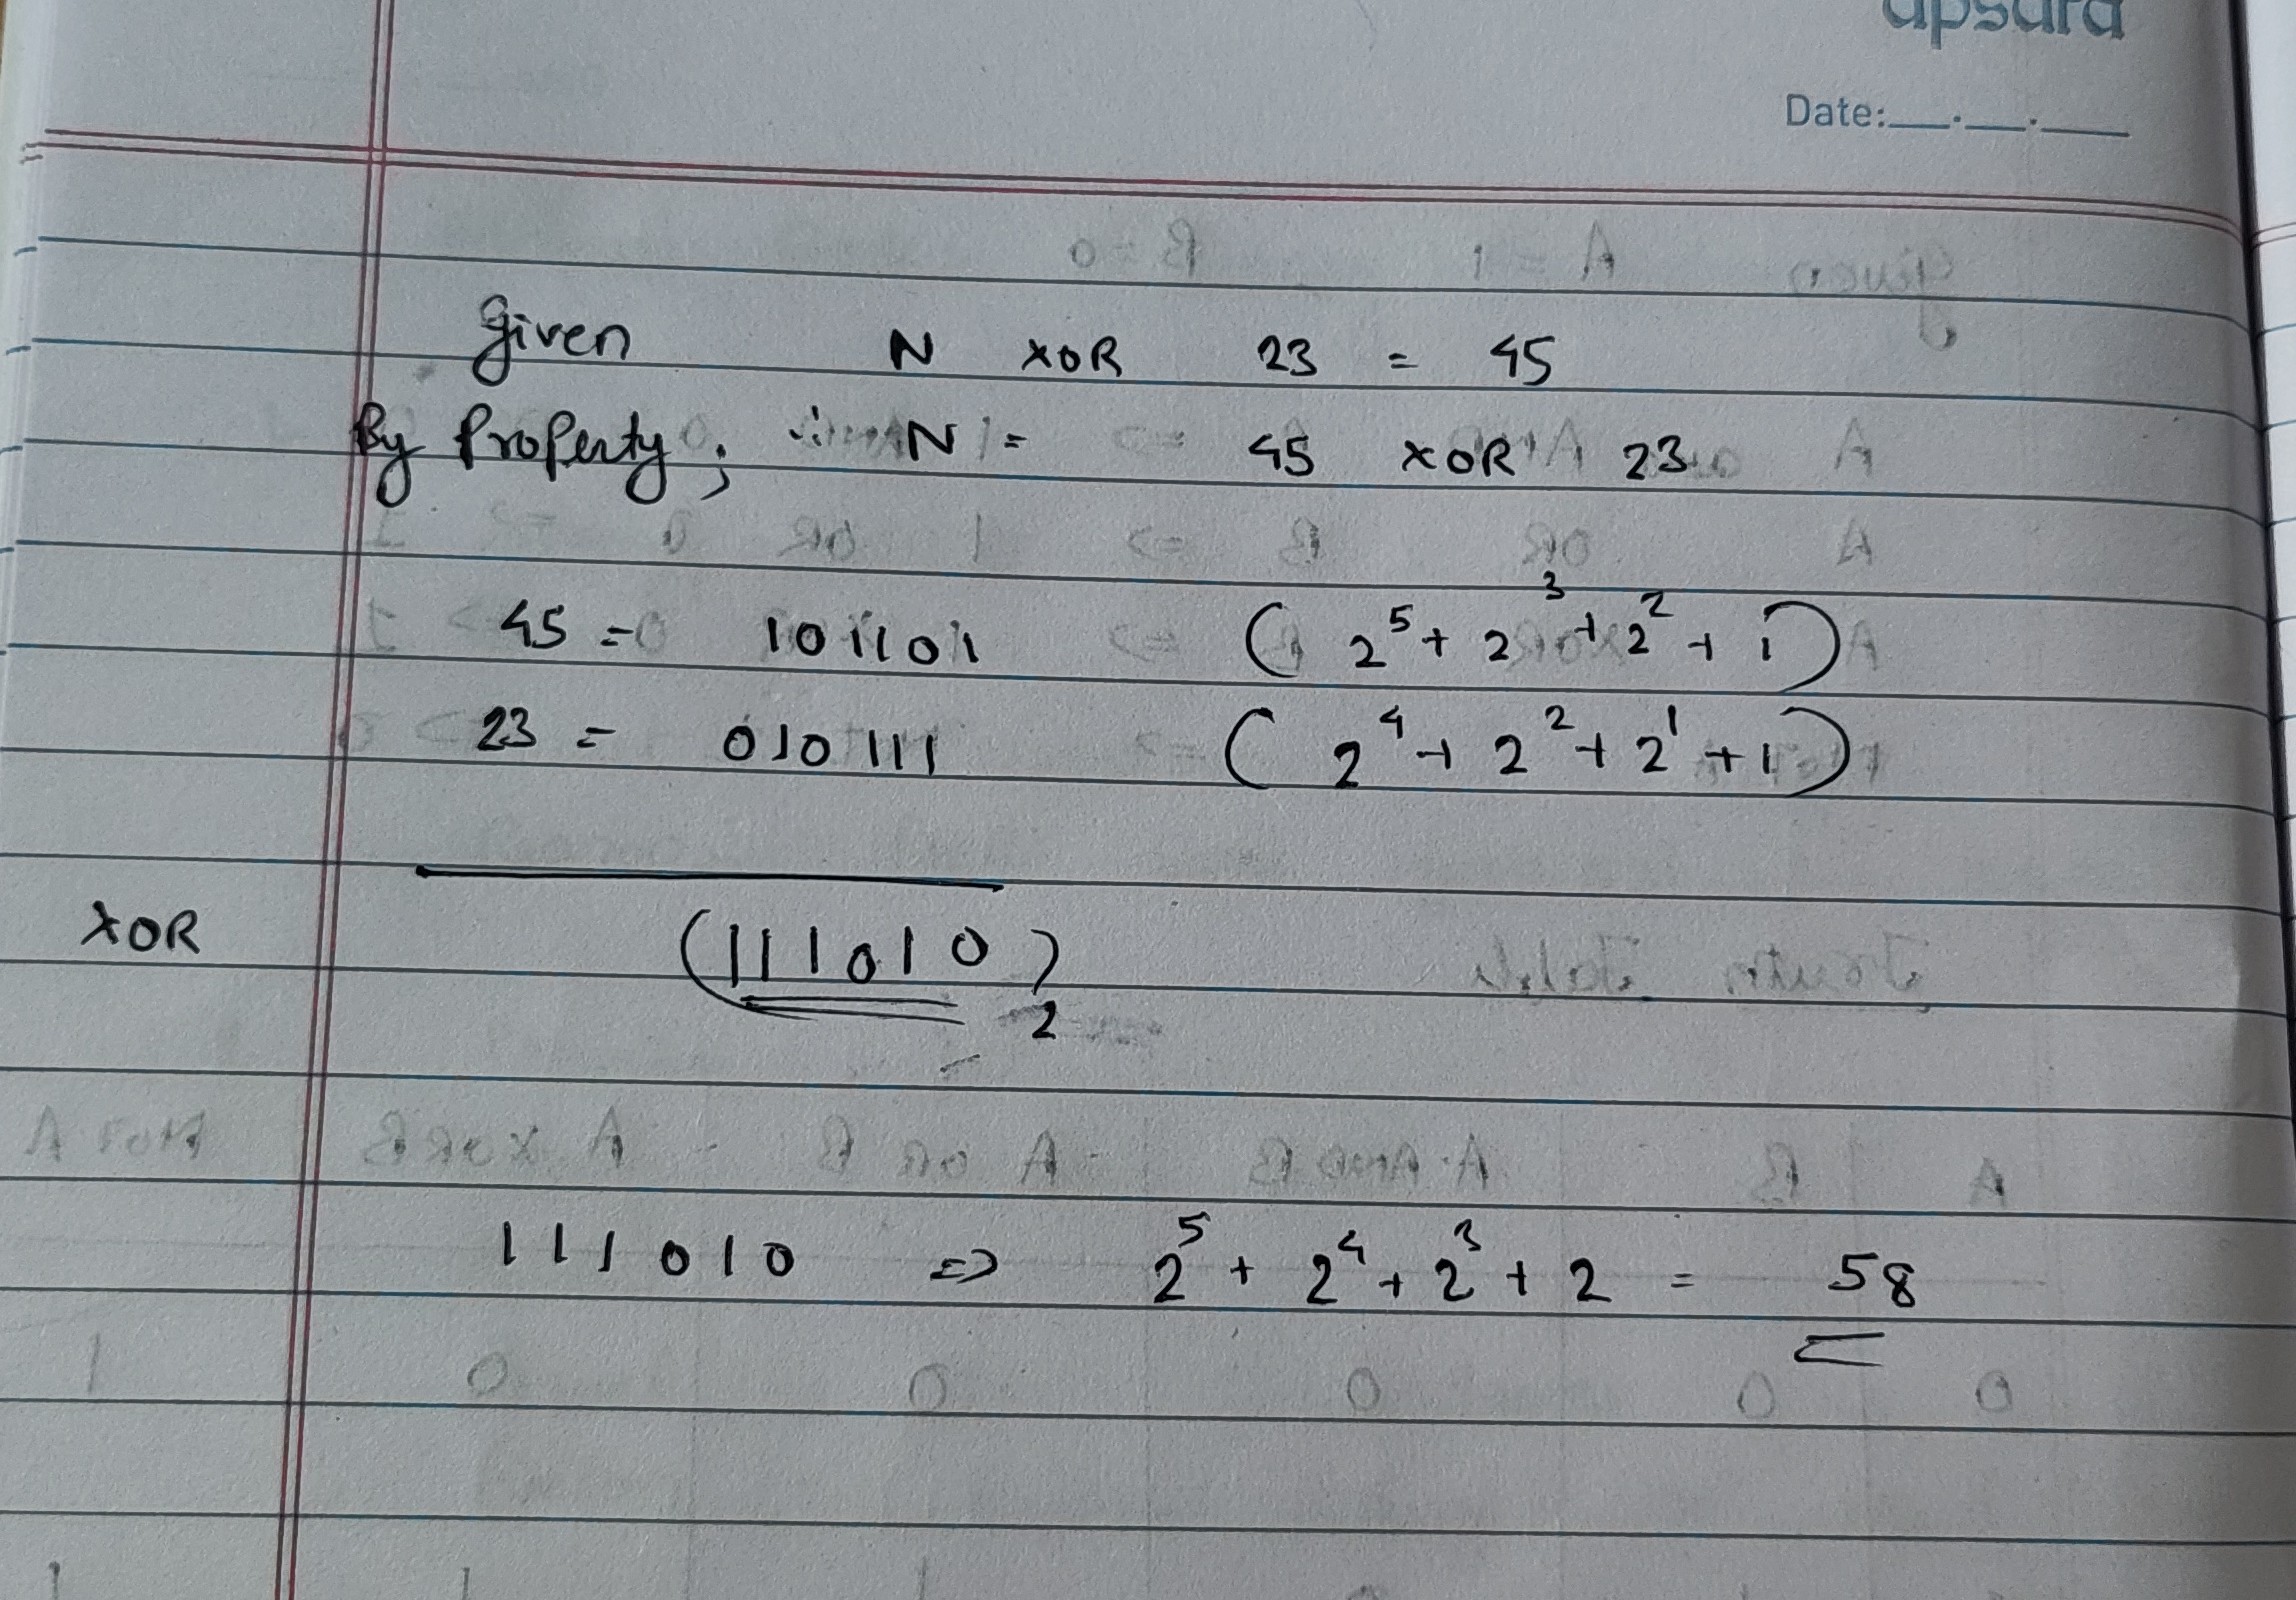 apsara
Date:__.__.__
Given N XOR 23 = 45
By Property; ∴ N = 45 XOR 23
45 = 101101 (2⁵ + 2³ + 2² + 1)
23 = 010111 (2⁴ + 2² + 2¹ + 1)
XOR (111010)₂
111010 => 2⁵ + 2⁴ + 2³ + 2 = 58